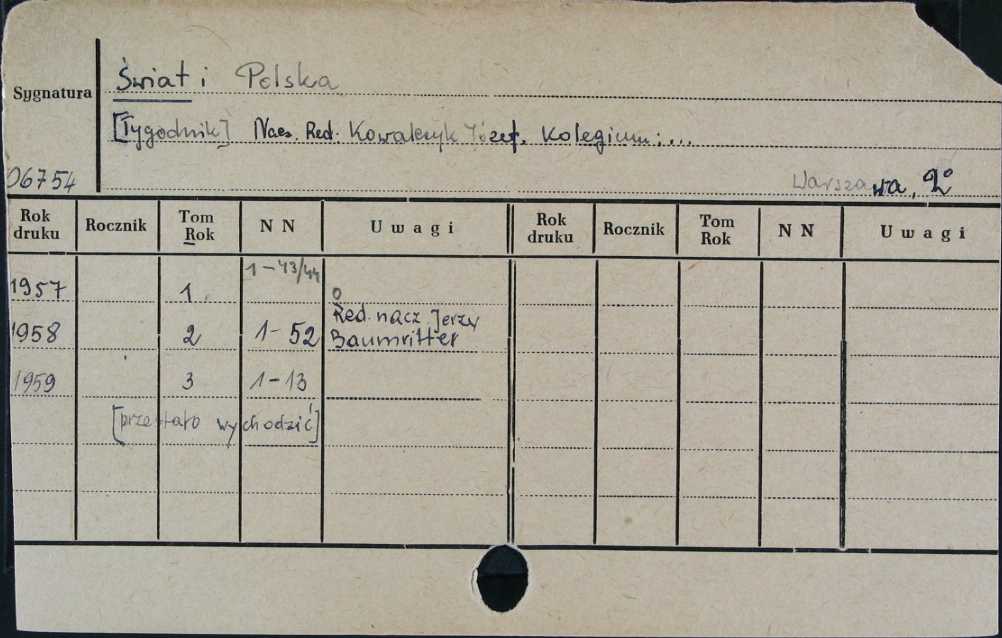 Świat i Polska
Sygnatura
[Tygodnik] Nacz. Red. Kowalczyk Józef. Kolegium: ...
06754
Warszawa, 2°
Rok druku Rocznik Tom Rok N N U w a g i Rok druku Rocznik Tom Rok N N U w a g i
1957 1 1-43/44
1958 2 1-52 Red. nacz. Jerzy Baumritter
1959 3 1-13
[przestało wychodzić]